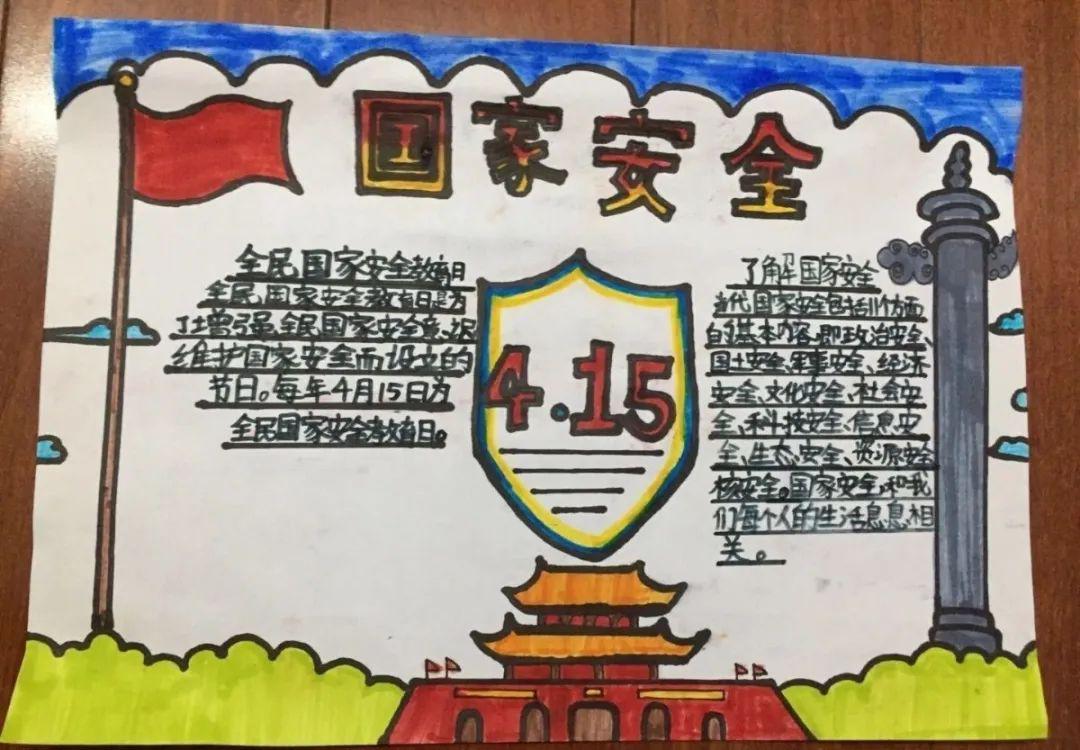 国家安全
全民国家安全教育日
全民国家安全教育日是为
了增强全民国家安全意识
维护国家安全而设立的
节日。每年4月15日为
全民国家安全教育日。
4.15
了解国家安全
当代国家安全包括11个方面
的基本内容,即政治安全、
国土安全、军事安全、经济
安全、文化安全、社会安
全、科技安全、信息安
全、生态安全、资源安全
核安全。国家安全和我
们每个人的生活息息相
关。